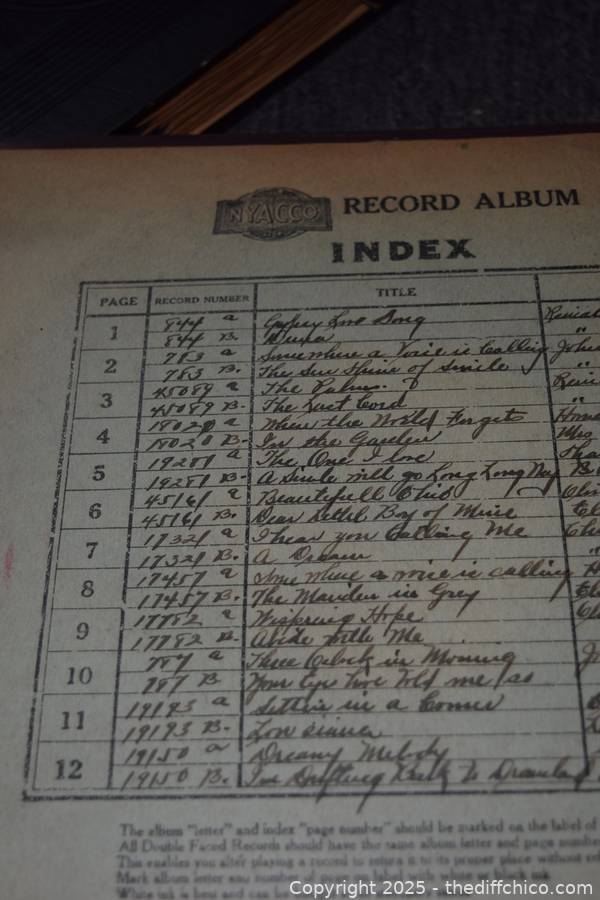 NYACCO RECORD ALBUM
INDEX
PAGE RECORD NUMBER TITLE
1 844 a Gypsy Love Song
844 B.
2 783 a Somewhere a Voice is Calling John
783 B. The Sun Shine of Smile
3 45089 a The Palms.
45089 B. The Last Cord
4 18020 a When the World Forgets
18020 B. In the Garden
5 19281 a The One I love
19281 B. A Smile will go Long Long Way
6 45161 a Beautefull Ohio
45161 B. Dear Little Boy of Mine
7 17321 a I hear you Calling Me
17321 B. A Dream
8 17457 a Some where a voice is calling
17457 B. The Maiden in Grey
9 17782 a Wispring Hope
17782 B. Abide With Me
10 787 a Three Oclock in Morning
787 B Your Eyes have told me so
11 19193 a Settin in a Corner
19193 B.
12 19150 a Dreamy Melody
19150 B. Im Drifting Back to Dreamland
The album "letter" and index "page number" should be marked on the label of
All Double Faced Records should have the same album letter and page number
This enables you after playing a record to return it to its proper place without
Mark album letter and number
White ink is best and can be
Copyright 2025 - thediffchico.com